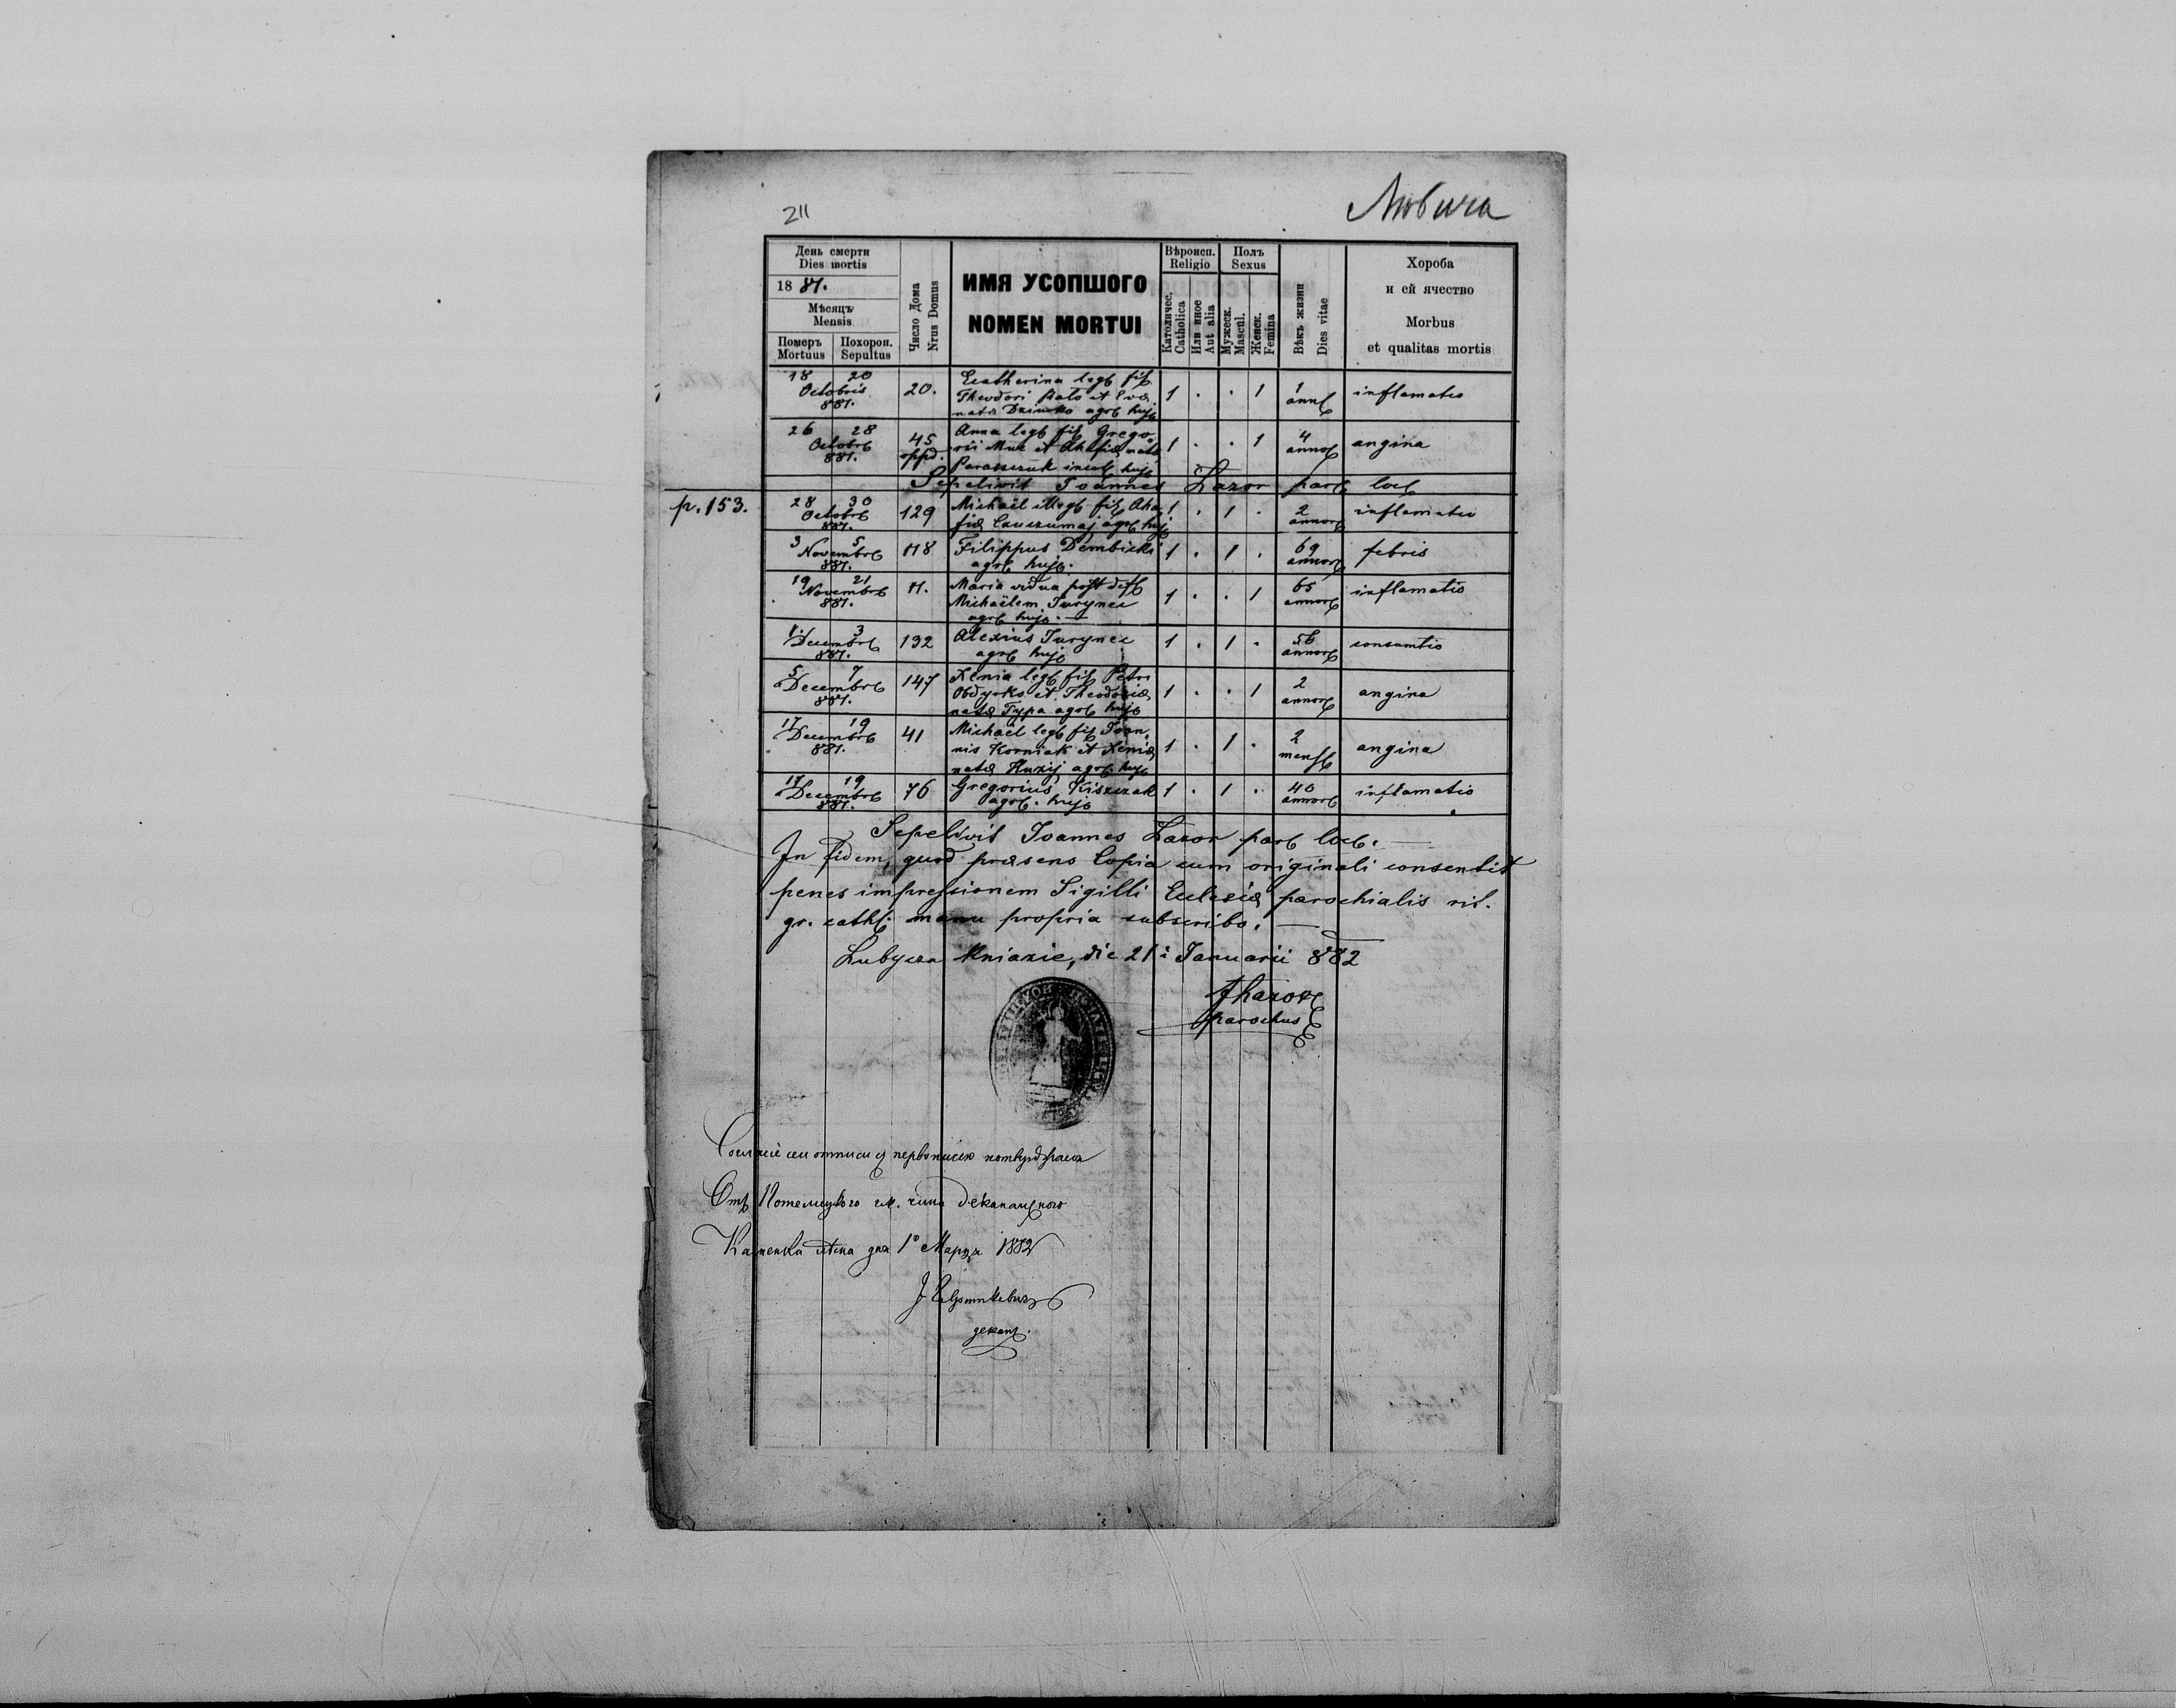 211
Любича
День смерти
Dies mortis
1881.
Мѣсяцъ
Mensis
Померъ Похорон.
Mortuus Sepultus
Число Дома
Nrus Domus
ИМЯ УСОПШОГО
NOMEN MORTUI
Вѣроисп.
Religio
Католичес.
Catholica
Или иное
Aut alia
Полъ
Sexus
Мужеск.
Mascul.
Женск.
Femina
Вѣкъ жизни
Dies vitae
Хороба
и ей ячество
Morbus
et qualitas mortis
18 20
Octobris
881.
20.
Ecatherina legt fil
Theodori et Eva
nata Dziurko agrc hujc
1 . . 1
1
anni
inflamatio
26 28
Octobr
881.
45
oppd.
Anna legt fil Grego
rii Muc et Ahafia nata
Paraszczuk incol hujc
1 . . 1
4
annor
angina
Sepelivit Joannes Lazor par loc
p. 153.
28 30
Octobr
881.
129
Michaël illegt fil Aha
fia agrc hujc
1 . 1 .
2
annor
inflamatio
3 5
Novembr
881.
118
Filippus Dembicki
agrc hujc.
1 . 1 .
69
annor
febris
19 21
Novembr
881.
11.
Maria vidua post def
Michaëlem Jurynec
agrc hujc.
1 . . 1
65
annor
inflamatio
1 3
Decembr
881.
132
Alexius Jurynec
agrc hujc
1 . 1 .
56
annor
consumtio
5 7
Decembr
881.
147
Xenia legt fil Petri
Obdyrko et Theodosia
nata Gypa agrc hujc
1 . . 1
2
annor
angina
17 19
Decembr
881.
41
Michaël legt fil Joan
nis Korniak et Xenia
nata Huzij agrc hujc
1 . 1 .
2
mens
angina
17 19
Decembr
881.
76
Gregorius Kiszczak
agrc. hujc
1 . 1 .
40
annor
inflamatio
Sepelivit Joannes Lazor par loc.
In fidem, quod præsens Copia cum originali consentit
penes impressionem Sigilli Eclesiæ parochialis rit.
gr. cath. manu propria subscribo.
Lubycza Kniazie, die 21i Januarii 882
J Lazor
parochus
сеи отписи съ первописею потверджаєся
Отъ Потелицкого гк. чина деканального
Каменка лѣсна дня 1º Марта 1882
деканъ.